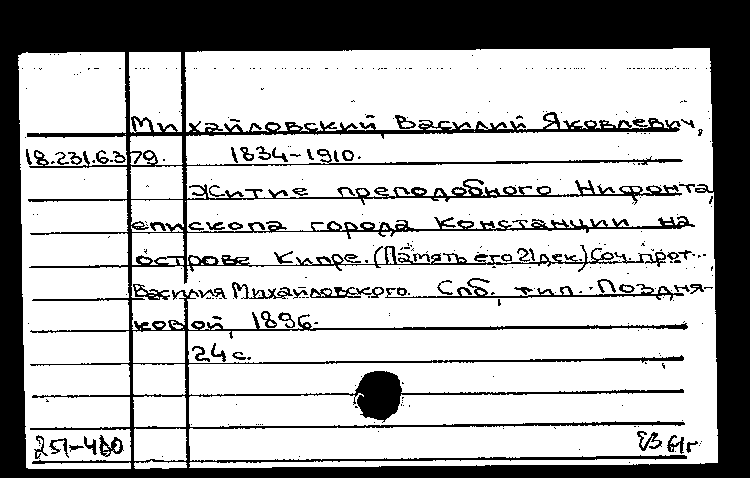 Михайловский, Василий Яковлевич,
18.231.6.379. 1834-1910.
Житие преподобного Нифонта,
епископа города Констанции на
острове Кипре. (Память его 21 дек.) Соч. прот.
Василия Михайловского. Спб., тип. Поздня-
ковой, 1896.
24 с.
251-400